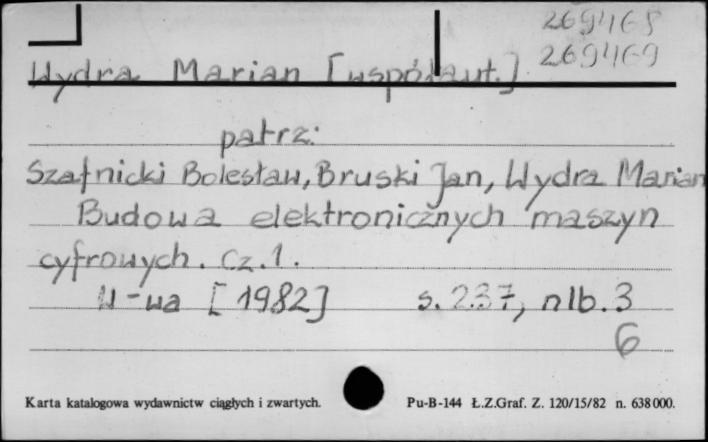 269468
269469
Wydra Marian [współaut.]
patrz:
Szafnicki Bolesław, Bruski Jan, Wydra Marian
Budowa elektronicznych maszyn
cyfrowych. Cz. 1.
W-wa [1982] s. 237, nlb. 3
6
Karta katalogowa wydawnictw ciągłych i zwartych. Pu-B-144 Ł.Z.Graf. Z. 120/15/82 n. 638 000.